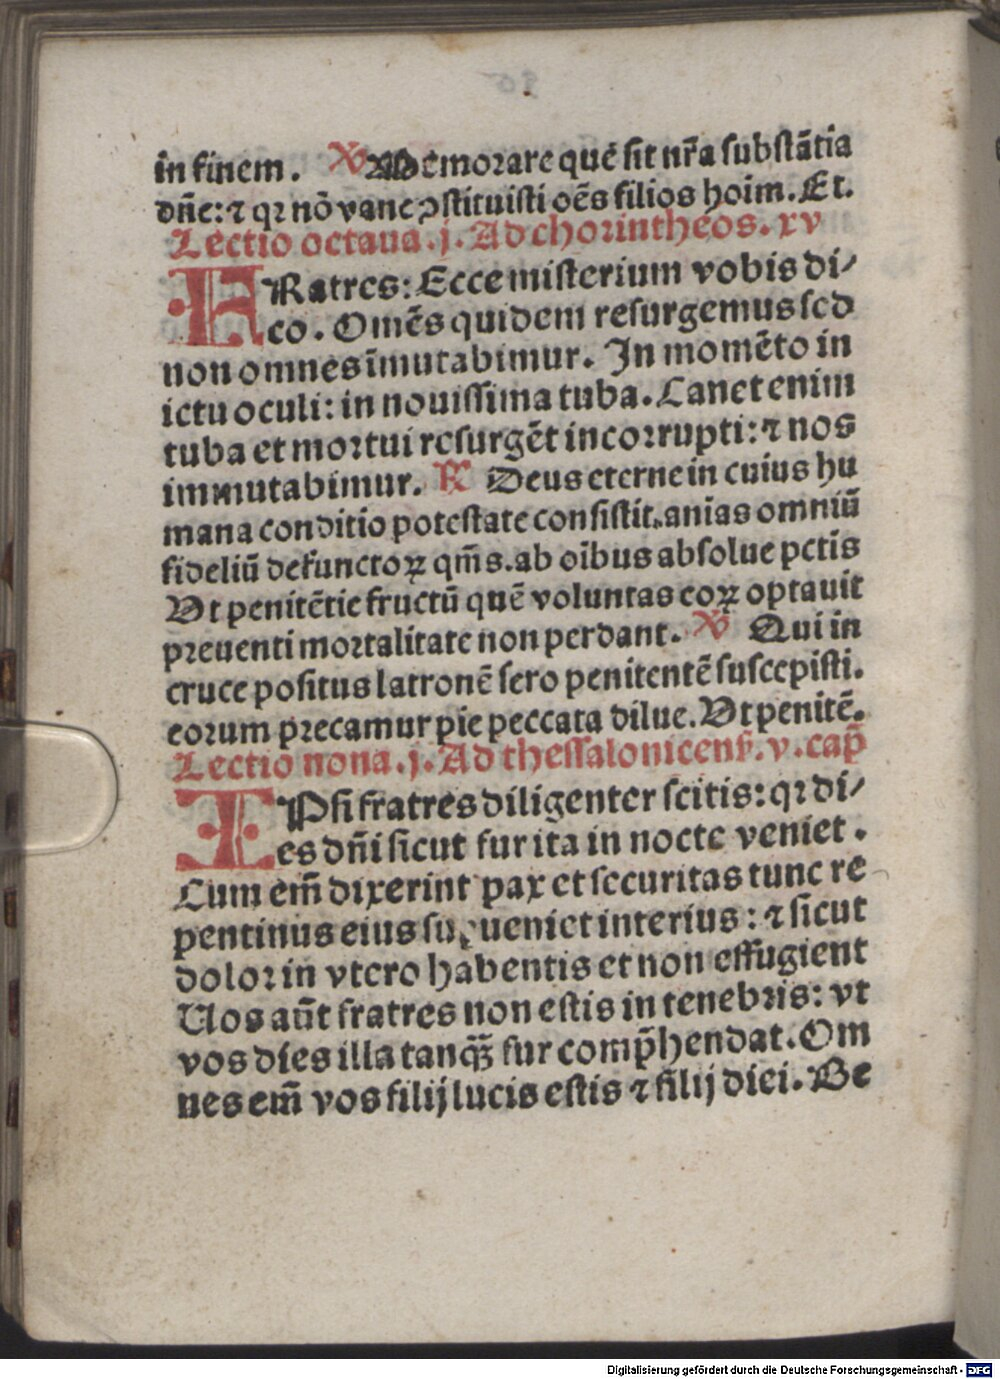 in finem. ℣ Memorare quē sit nr̄a substātia
dn̄e: ⁊ qꝛ nō vane ꝯstituisti oēs filios hoīm. Et.
Lectio octaua. j. Ad chorintheos. xv
FRatres: Ecce misterium vobis di/
co. Omēs quidem resurgemus sed
non omnes īmutabimur. In momēto in
ictu oculi: in nouissima tuba. Canet enim
tuba et mortui resurgēt incorrupti: ⁊ nos
immutabimur. ℟ Deus eterne in cuius hu
mana conditio potestate consistit. anīas omniū
fideliū defunctoꝝ qm̄s. ab oībus absolue pctīs
Vt penitētie fructū quē voluntas eoꝝ optauit
preuenti mortalitate non perdant. ℣ Qui in
cruce positus latronē sero penitentē suscepisti.
eorum precamur pie peccata dilue. Vt penitē.
Lectio nona. j. Ad thessalonicens̄. v. cap̄
IPsi fratres diligenter scitis: qꝛ di/
es dn̄i sicut fur ita in nocte veniet.
Cum em̄ dixerint pax et securitas tunc re
pentinus eius suꝑueniet interius: ⁊ sicut
dolor in vtero habentis et non effugient
Uos aūt fratres non estis in tenebris: vt
vos dies illa tanqȝ̄ fur comp̄hendat. Om
nes em̄ vos filij lucis estis ⁊ filij diei. Be
Digitalisierung gefördert durch die Deutsche Forschungsgemeinschaft - DFG